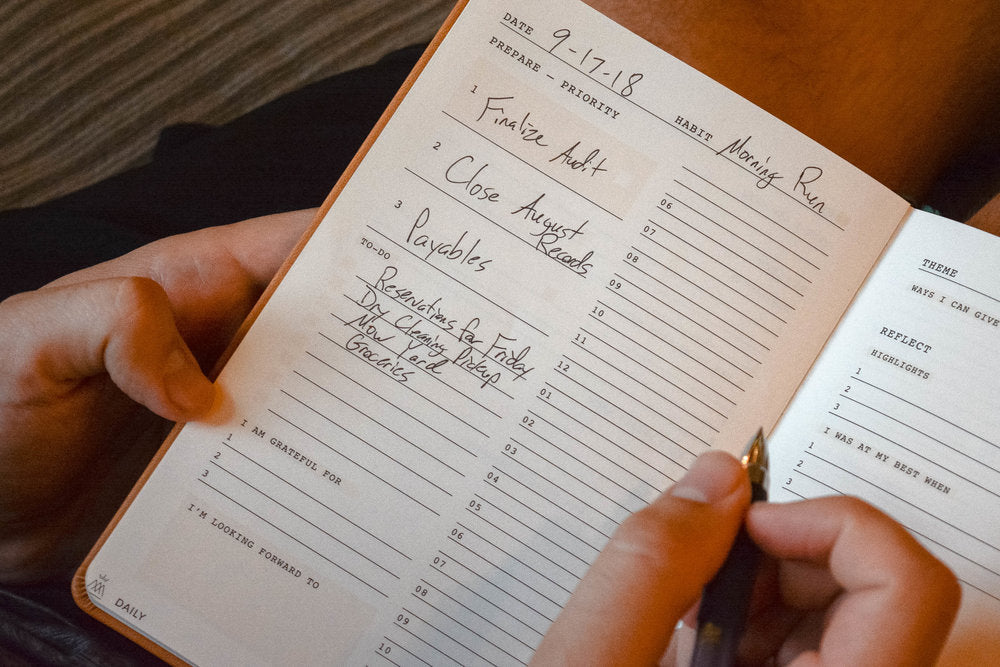 DATE 9-17-18
PREPARE — PRIORITY
1 Finalize Audit
2 Close August
Records
3 Payables
TO-DO
Reservations for Friday
Dry Cleaning Pickup
Mow Yard
Groceries
I AM GRATEFUL FOR
1
2
3
I'M LOOKING FORWARD TO
DAILY
HABIT Morning Run
06
07
08
09
10
11
12
01
02
03
04
05
06
07
08
09
10
THEME
WAYS I CAN GIVE
REFLECT
HIGHLIGHTS
1
2
3
I WAS AT MY BEST WHEN
1
2
3